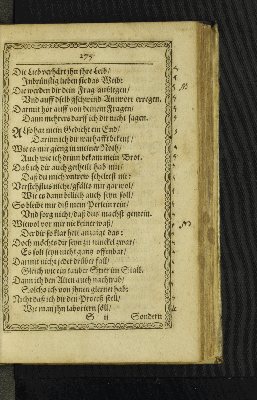 275
Die Lieb verhärt ihn ihre Leib/
Inbrünstig lieben sie das Weib:
Die werden dir dein Frag anlegen/
Vnd auff geschwind Antwort erregen.
Darmit hör auff von deinem Fragen/
Dann mehrers darff ich dir nicht sagen.
Also hat mein Gedicht ein End/
Darinn ich dir warhafft bekent/
Wie es mir gieng in meiner Noth/
Auch wie ich drinn bekam mein Brot.
Daß ich dir auch getheilt hab mit/
Daß du mich
Verschmähs nicht/gfällts mir gar wol/
Wie es dann billich auch seyn sol/
So bleibt mir diß mein Poetisch rein/
Vnd sorg nicht/ daß dus machst gemein.
Wiewol vor mir nie keiner war/
Der dir so klar hett anzeigt das:
Doch möchts dir seyn zu tunckel zwar/
Es soll seyn nicht gang offenbar/
Darmit nicht jeder drüber fall/
Gleich wie ein tauber Stier im Stall.
Dann ich den Alten auch nachtrab/
Solchs ich von ihnen glernet hab:
Nicht daß ich dir den Proceß stell/
Wie man ihn laboriern söll/
S ij Sondern